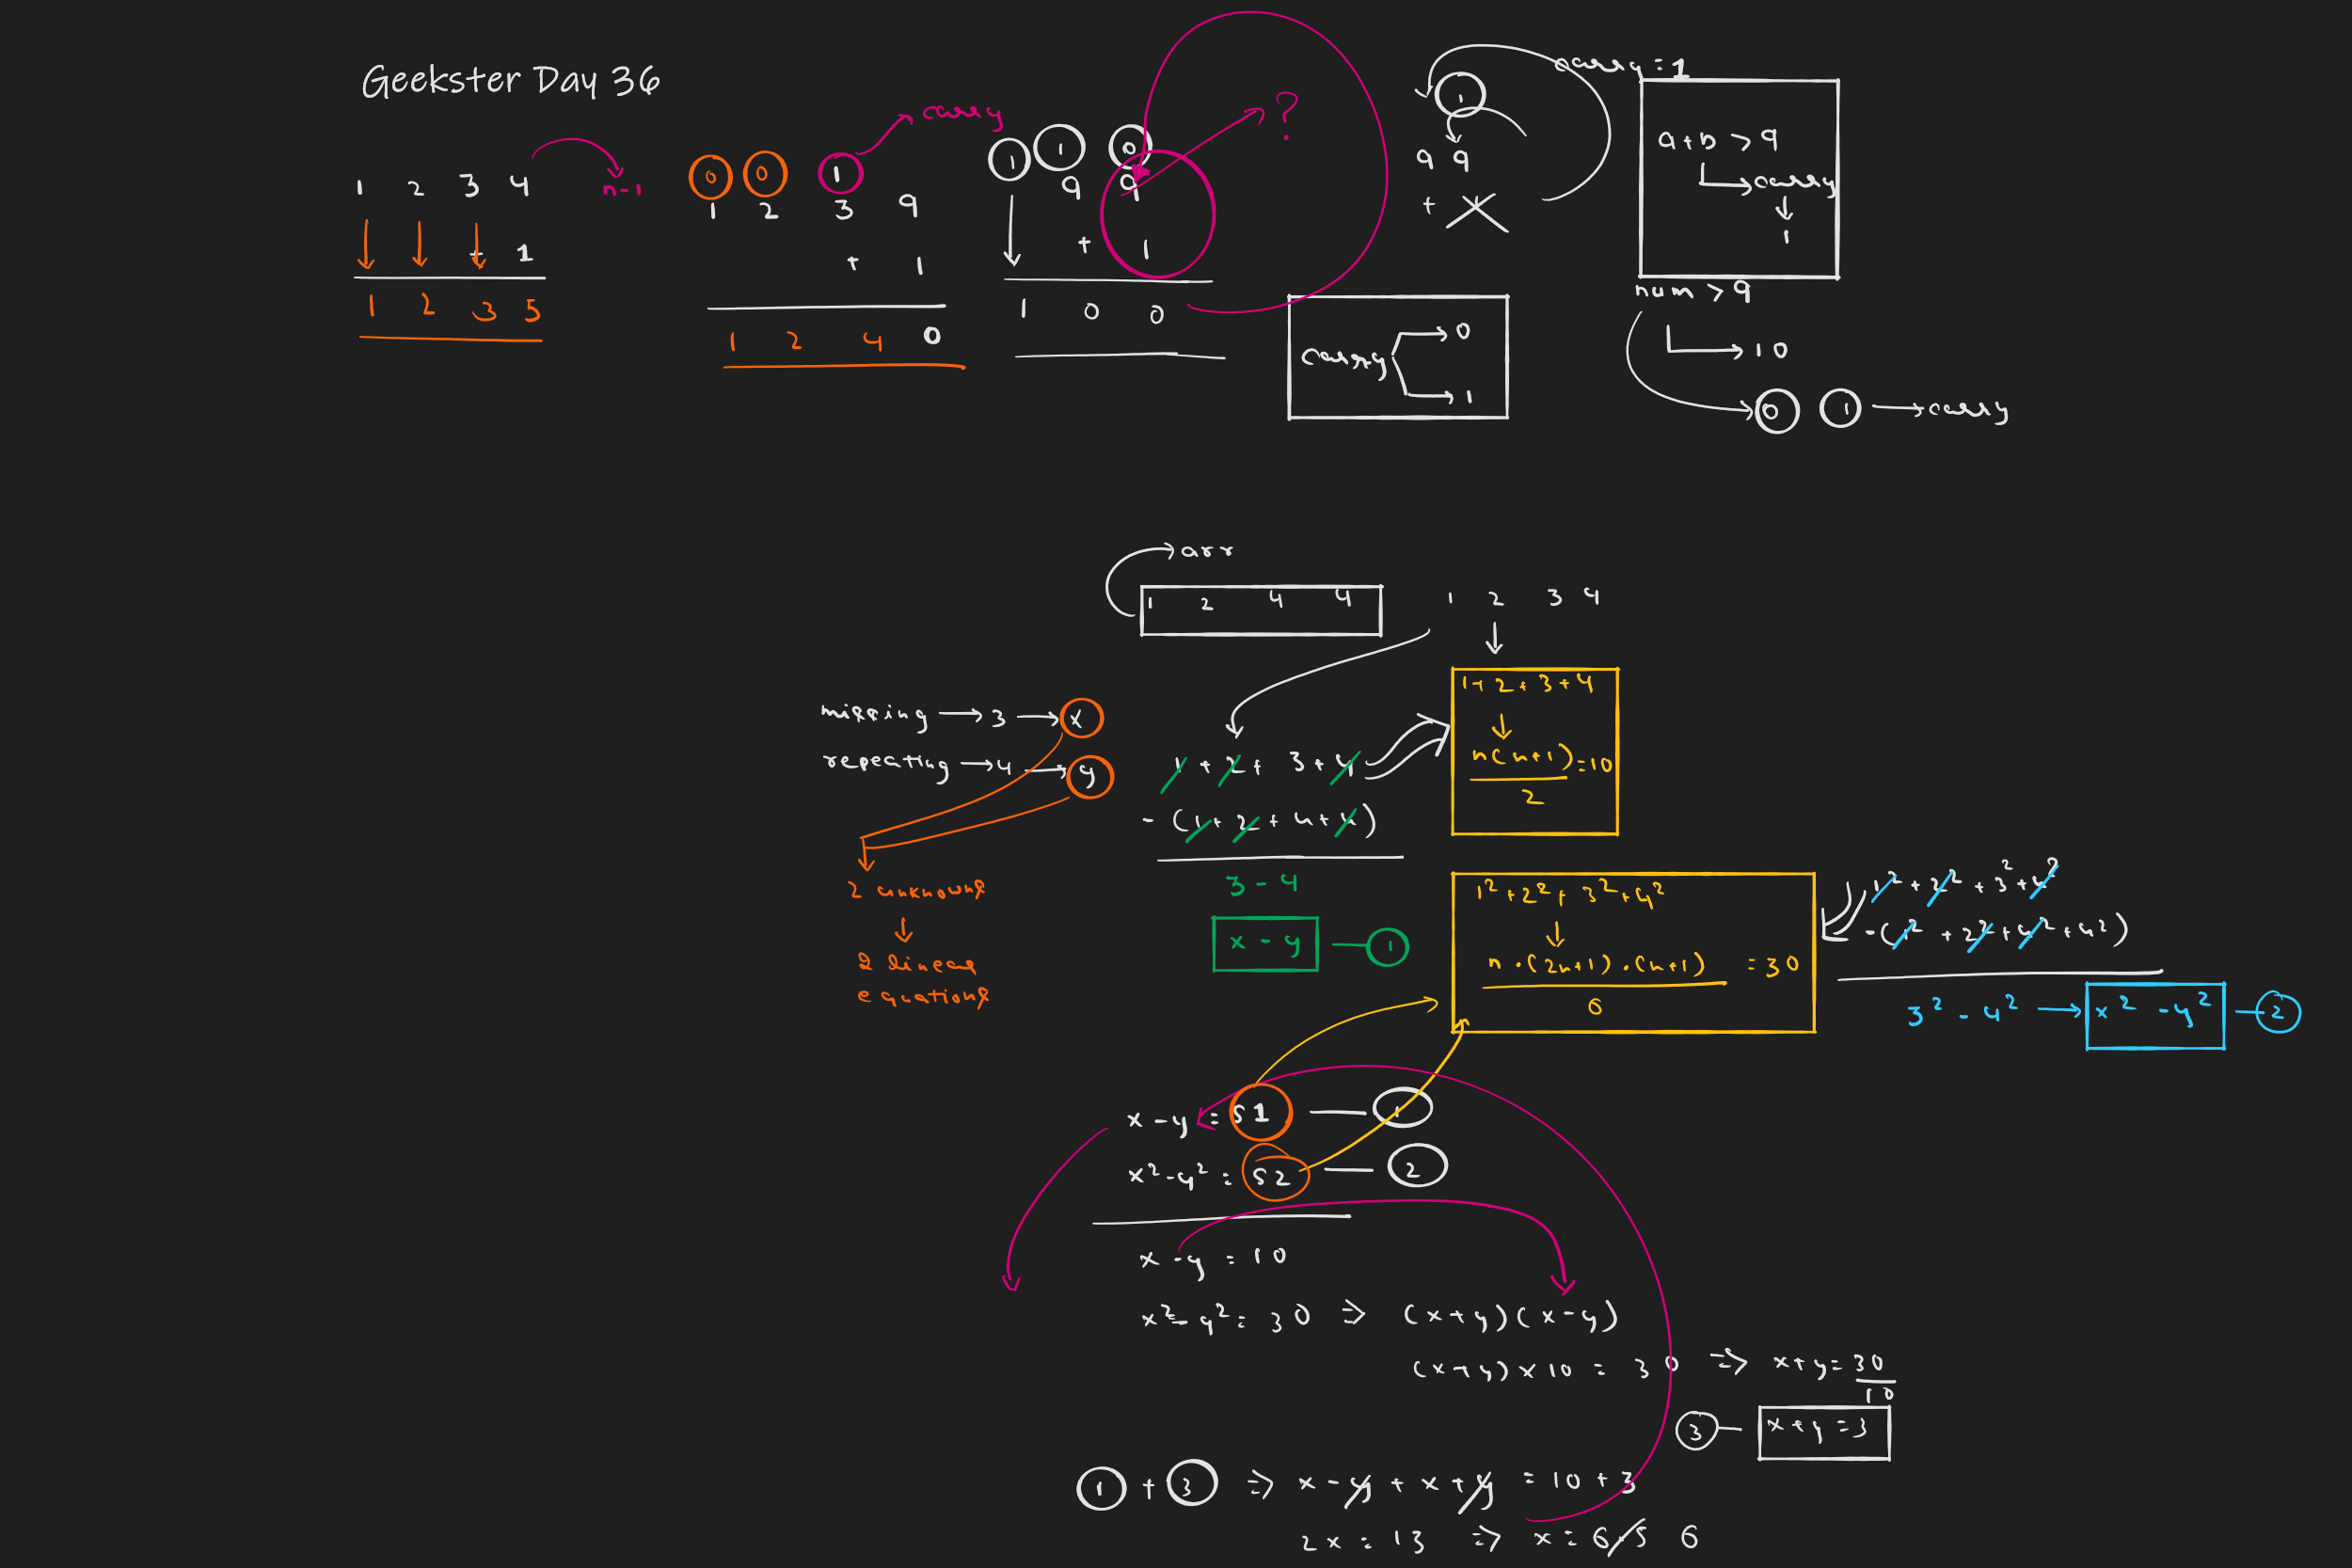 Geekster Day 36
1 2 3 4
n-1
+ 1
1 2 3 5
carry
0 0 1
1 2 3 9
+ 1
1 2 4 0
?
1 1 0
9 9
+ 1
1 0 0
1
9 9
+
carry = 1
a+b > 9
carry
1
carry
0
1
num > 9
10
0 1 carry
arr
1 2 4 4
1 2 3 4
missing → 3 → x
repeating → 4 → y
2 unknowns
2 linear
equations
1 + 2 + 3 + 4
- (1 + 2 + 4 + 4)
3 - 4
x - y — 1
1 + 2 + 3 + 4
n(n+1) = 10
2
1² + 2² + 3² + 4²
n · (2n+1) · (n+1) = 30
6
1² + 2² + 3² + 4²
-(1² + 2² + 4² + 4²)
3² - 4² → x² - y² — 2
x - y = S1 — 1
x² - y² = S2 — 2
x - y = 10
x² - y² = 30 ⇒ (x+y)(x-y)
(x+y) x 10 = 30 ⇒ x+y = 30
10
3 — x+y = 3
1 + 3 ⇒ x - y + x + y = 10 + 3
2x = 13 ⇒ x = 6/5 6